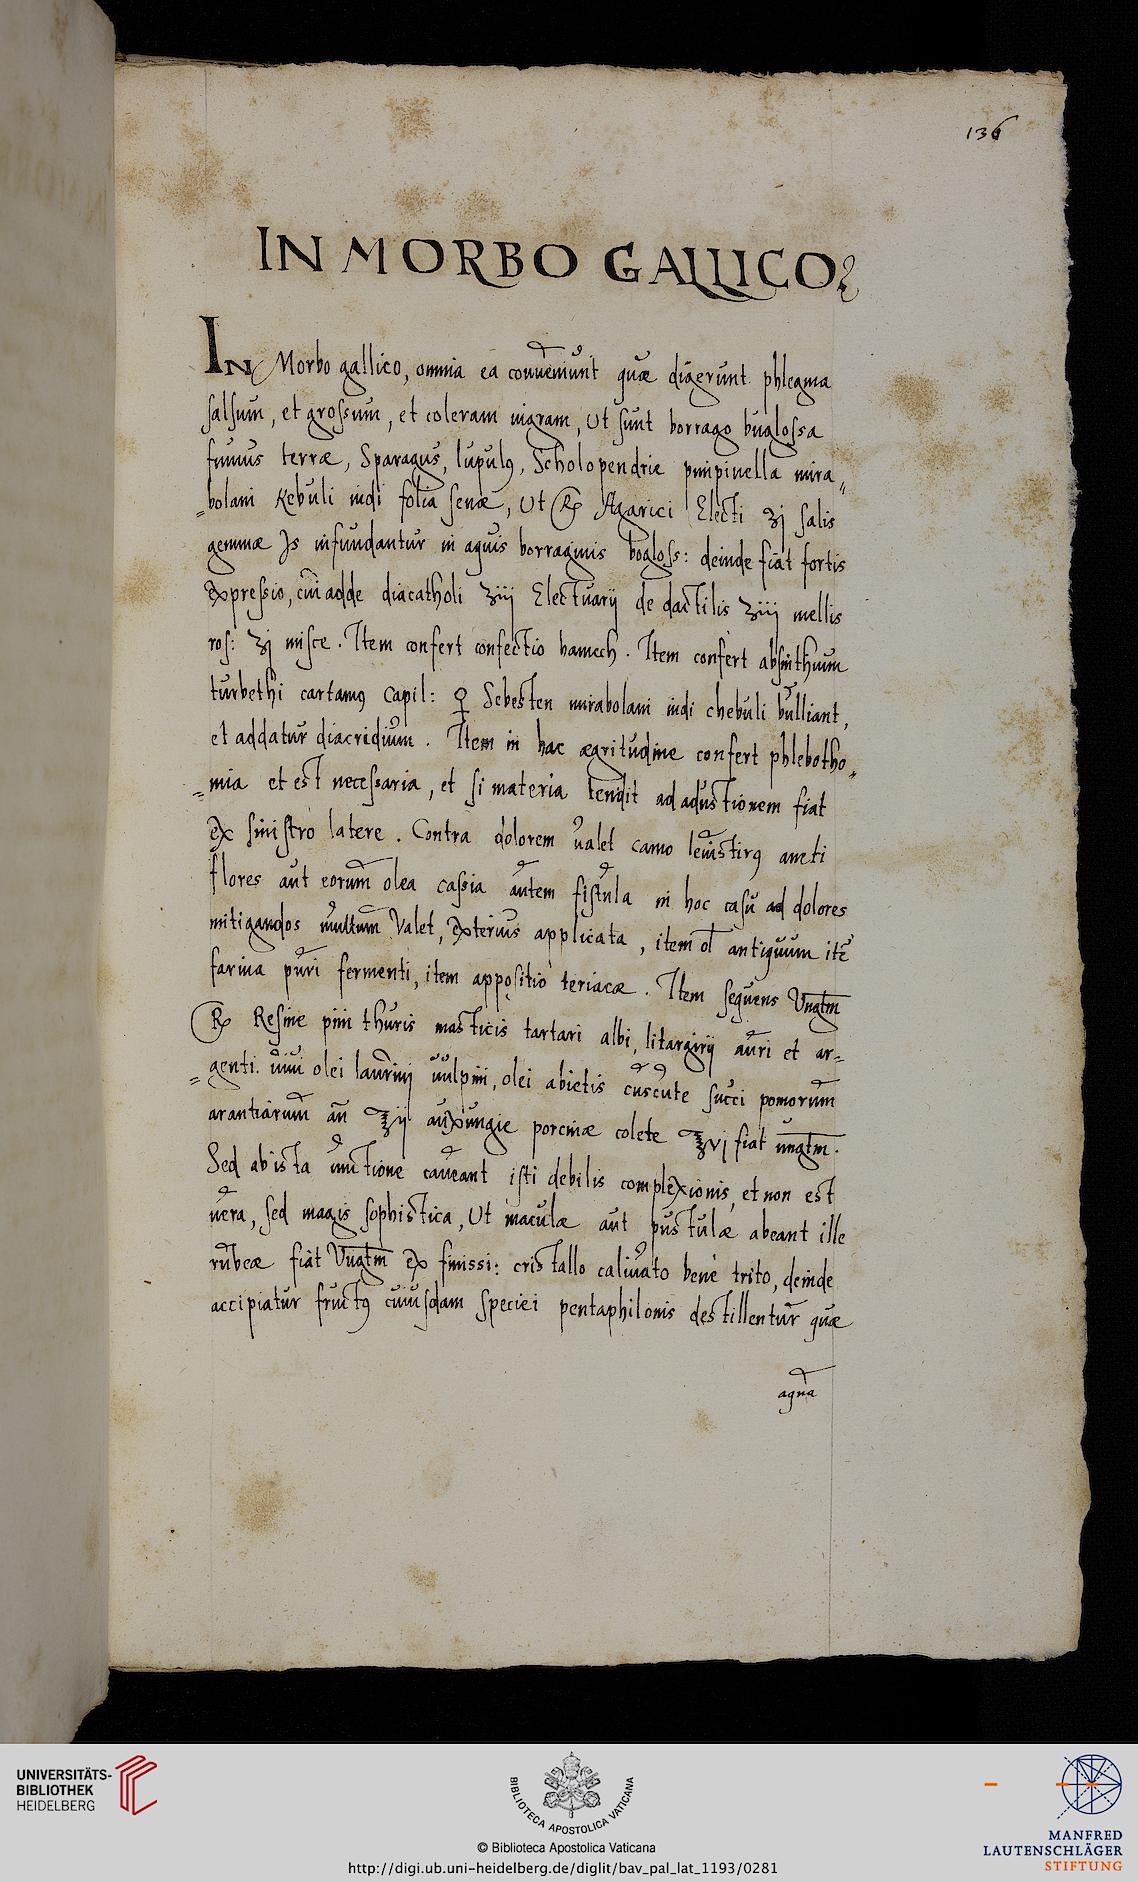 136
IN MORBO GALLICO
IN Morbo gallico, omnia ea conueniunt quæ digerunt phlegma
salsum, et grossum, et coleram nigram, Ut sunt borrago buglossa
fumus terræ, Sparagus, lupulꝰ, Scholopendrie pimpinella mira„
„bolani Kebuli indi folia senæ, Ut ℞ Agarici Electi ʒj salis
gemmæ infundantur in aquis borraginis bogloss: deinde fiat fortis
expressio, cui adde diacatholi ʒiij Electuarij de dactilis ʒiij mellis
ros: ʒj misce. Item confert confectio hamech. Item confert absinthium
turbethi cartamꝰ Capil: ♀ Sebesten mirabolani indi chebuli bulliant,
et addatur diacridium. Item in hac ægritudine confert phlebotho„
„mia et est necessaria, et si materia tendit ad adustionem fiat
ex sinistro latere. Contra dolorem ualet camo aneti
flores aut eorum olea cassia autem fistula in hoc casu ad dolores
mitigandos multum Valet, exterius applicata, item ol antiquum itē
farina puri fermenti, item appositio teriacæ. Item sequens Vngtm
℞ Resine pini thuris masticis tartari albi, litargirij auri et ar-
„genti. uiui olei laurini uulpini, olei abietis cuscute succi pomorum
arantiarum an ʒij auxungie porcinæ colete ʒvj fiat ungtm.
Sed ab ista unctione caueant isti debilis complexionis, et non est
uera, sed magis sophistica, Ut maculæ aut pustulæ abeant ille
rubeæ fiat Vngtm ex finissi: cristallo bene trito, deinde
accipiatur fructꝰ cuiusdam speciei pentaphilonis destillentur quæ
aqua
UNIVERSITÄTS-
BIBLIOTHEK
HEIDELBERG
BIBLIOTECA APOSTOLICA VATICANA
© Biblioteca Apostolica Vaticana
http://digi.ub.uni-heidelberg.de/diglit/bav_pal_lat_1193/0281
MANFRED
LAUTENSCHLÄGER
STIFTUNG